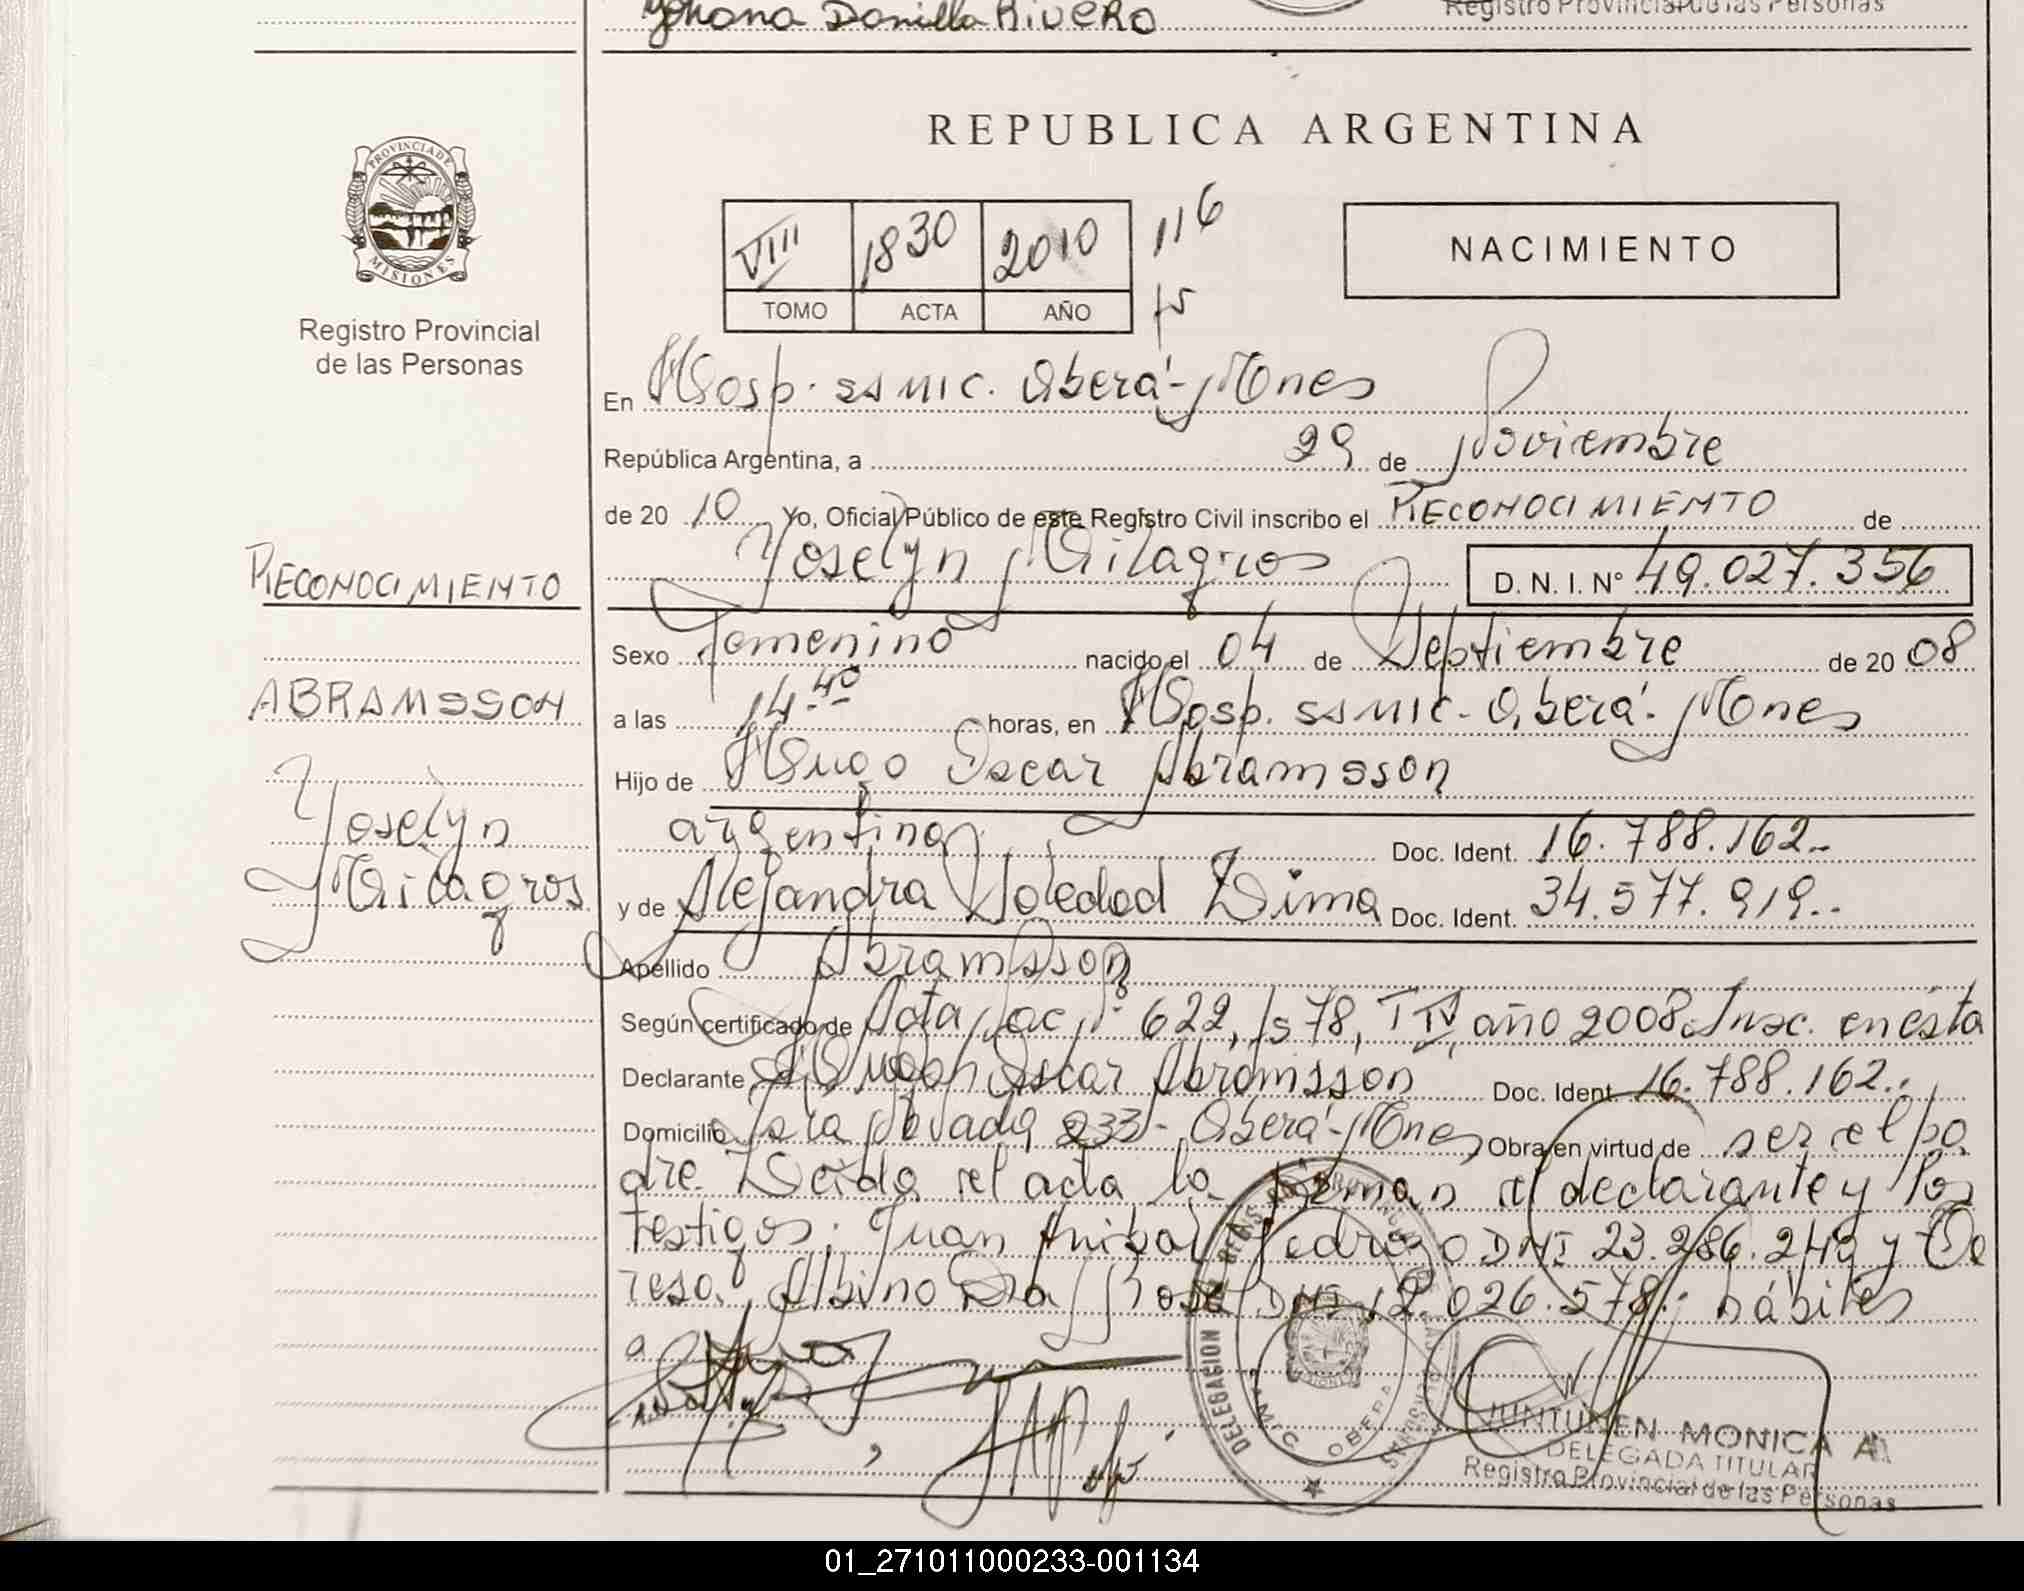 Yohana Daniella Rivero
Registro Provincial de las Personas
PROVINCIA DE
MISIONES
Registro Provincial
de las Personas
REPUBLICA ARGENTINA
VIII 1830 2010 116
TOMO ACTA AÑO
NACIMIENTO
En Hosp. SAMIC. Oberá-Mnes
República Argentina, a 29 de Noviembre
de 20 10 Yo, Oficial Público de este Registro Civil inscribo el RECONOCIMIENTO de
Yoselyn Milagros D. N. I. Nº 49.027.356
RECONOCIMIENTO
ABRAMSSON
Yoselyn
Milagros
Sexo Femenino nacido el 04 de Septiembre de 20 08
a las 14.40 horas, en Hosp. SAMIC- Oberá- Mnes
Hijo de Hugo Oscar Abramsson
argentino Doc. Ident. 16.788.162..
y de Alejandra Soledad Dima Doc. Ident. 34.577.919..
Apellido Abramsson
Según certificado de Acta Nac Nº 622, Fs 78, T IV, año 2008. Insc. en ésta
Declarante Hugo Oscar Abramsson Doc. Ident. 16.788.162..
Domicilio 233- Oberá-Mnes Obra en virtud de ser el pa
dre. Leída el acta la firman el declarante y los
testigos: Juan Anibal Pedrozo DNI 23.286.249 y
Albino Da Rosa DNI 12.026.578.- hábiles
DELEGACION
OBERA
JUNTUNEN MONICA A.
DELEGADA TITULAR
Registro Provincial de las Personas
01_271011000233-001134